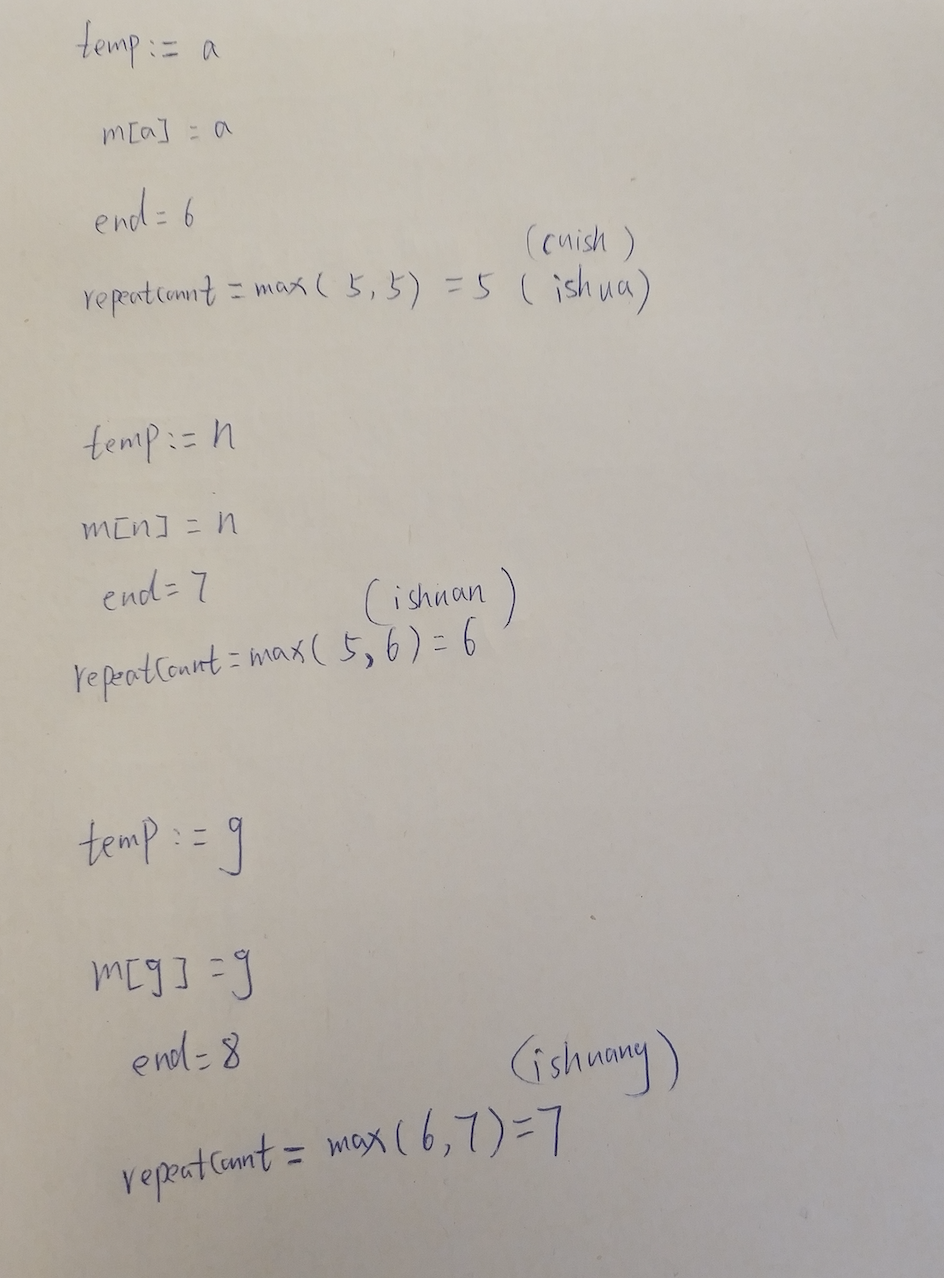 temp := a
m[a] = a
end = 6
(cuish)
repeatCount = max(5,5) = 5 (ishua)
temp := n
m[n] = n
end = 7
(ishuan)
repeatCount = max(5,6) = 6
temp := g
m[g] = g
end = 8
(ishuang)
repeatCount = max(6,7) = 7